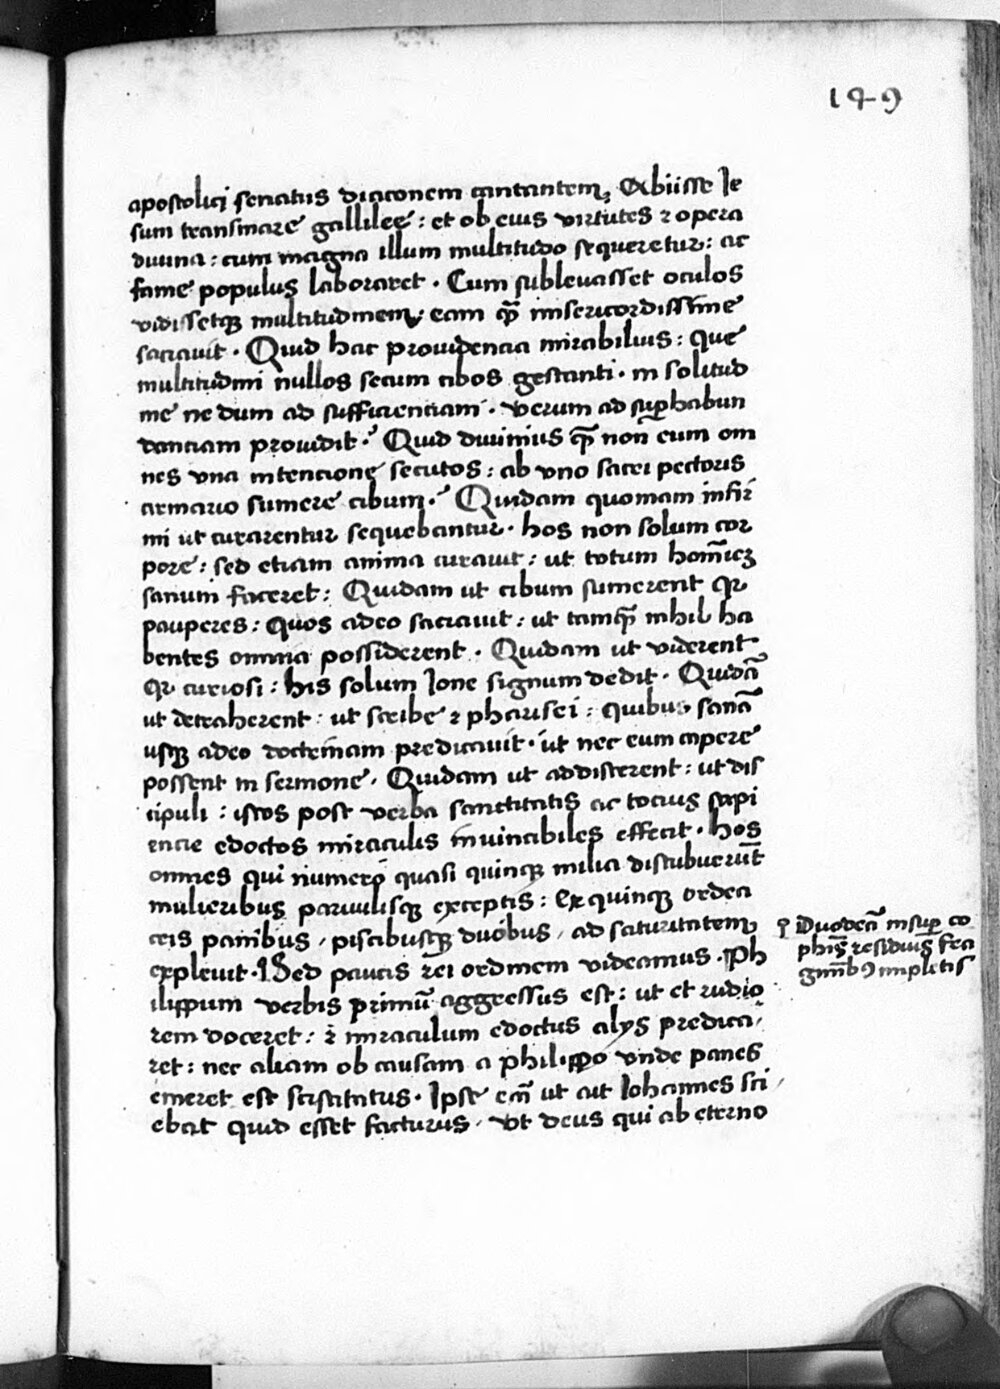 149
apostolici senatus diaconem cantantem, Abiisse Je
sum transmare gallilee : et ob eius virtutes ⁊ opera
diuina : cum magna illum multitudo sequeretur : ac
fame populus laboraret . Cum subleuasset oculos
vidissetqꝫ multitudinem, eam qͣꝫ misericordissime
saciauit . Quid hac prouidencia mirabilius : que
multitudini nullos secum cibos gestanti . in solitud
ine ne dum ad sufficienciam . verum ad suꝑhabun
danciam prouidit . Quid diuinius qͣꝫ non̄ eum om
nes vna intencione secutos : ab vno sacri pectoris
armario sumere cibum . Quidam quoniam infir
mi ut curarentur sequebantur . hos non solum cor
pore : sed etiam anima curauit : ut totum hom̄ieꝫ
sanum faceret : Quidam ut cibum sumerent qꝛ
pauperes : quos adeo saciauit : ut tamqͣꝫ nihil ha
bentes omnia possiderent . Quidam ut viderent
qꝛ curiosi : his solum Jone signum dedit . Quidā
ut detraherent : ut scribe ⁊ pharisei : quibus sanā
usqꝫ adeo doctrinam predicauit . ut nec eum capere
possent in sermone . Quidam ut addiscerent : ut dis
cipuli : istos post verba sanctitatis ac tocius sapi
encie edoctos miraculis inuincibiles effecit . hos
omnes qui numero quasi quinqꝫ milia discubuerūt
mulieribus paruulisqꝫ exceptis : ex quinqꝫ ordea
ceis panibus , piscibusqꝫ duobus , ad saturitatem
expleuit . Sed paucis rei ordinem videamus . Ph
ilippum verbis primū aggressus est : ut et rudio
rem doceret : ⁊ miraculum edoctus alijs predica
ret : nec aliam ob causam a philippo vnde panes
emeret est scistitatus . Ipse em̄ ut ait Iohannes sci
ebat quid esset facturus , vt deus qui ab eterno
Duodecī insuꝑ co
phīs residuis fra
gmībꝰ impletis